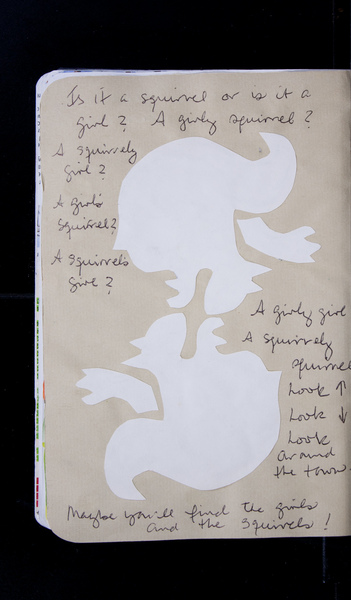 Is it a squirrel or is it a
girl? A girly squirrel?
A squirrely
girl?
A girl's
squirrel?
A squirrel's
girl?
A girly girl
A squirrely
squirrel
Look ↑
Look ↓
Look
around
the town
Maybe you'll find the girls
and the squirrels!